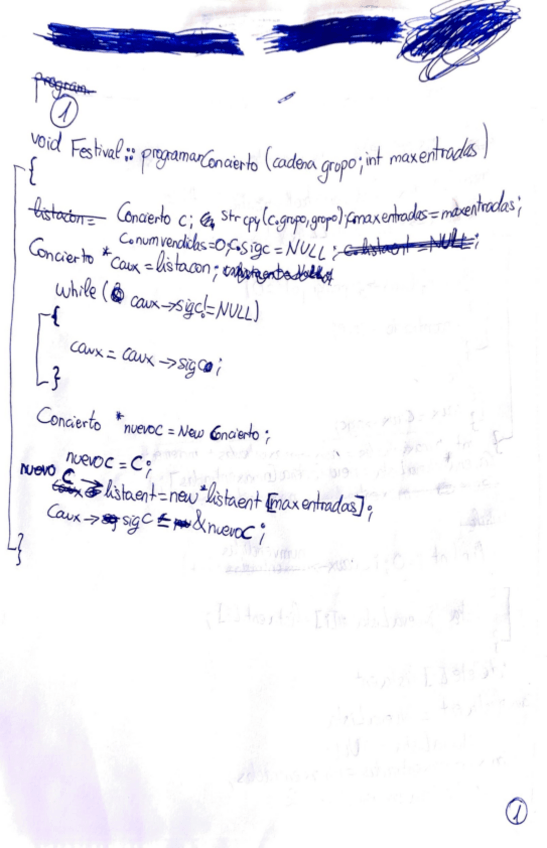 program
1
void Festival::programarConcierto (cadena grupo; int maxentradas)
{
listacon= Concierto c; strcpy(c.grupo,grupo); c.maxentradas=maxentradas;
c.numvendidas=0; c.sigc = NULL; c.listaent = NULL;
Concierto *caux = listacon;
while ( caux->sigc!=NULL)
{
caux = caux ->sigc;
}
Concierto *nuevoc = New Concierto;
nuevoc = C;
nuevo C -> listaent=new *listaent [maxentradas];
Caux-> sigC = &nuevoC;
}
1